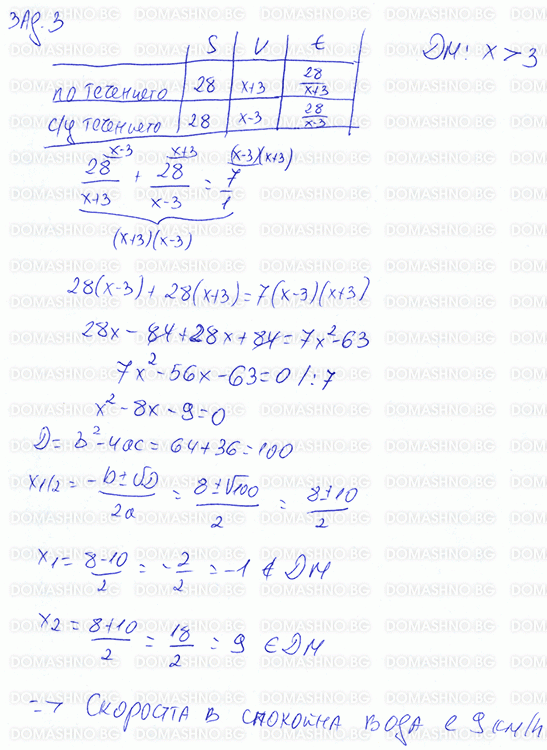 Зад. 3
S V t
ДМ: x > 3
по течението 28 x+3 28/(x+3)
с/у течението 28 x-3 28/(x-3)
x-3 x+3 (x-3)(x+3)
28/(x+3) + 28/(x-3) = 7/1
(x+3)(x-3)
28(x-3) + 28(x+3) = 7(x-3)(x+3)
28x - 84 + 28x + 84 = 7x² - 63
7x² - 56x - 63 = 0 /:7
x² - 8x - 9 = 0
D = b² - 4ac = 64 + 36 = 100
x1/2 = (-b ± √D)/2a = (8 ± √100)/2 = (8 ± 10)/2
x1 = (8-10)/2 = -2/2 = -1 ∉ ДМ
x2 = (8+10)/2 = 18/2 = 9 ∈ ДМ
=> Скоростта в спокойна вода е 9 км/h
DOMASHNO.BG